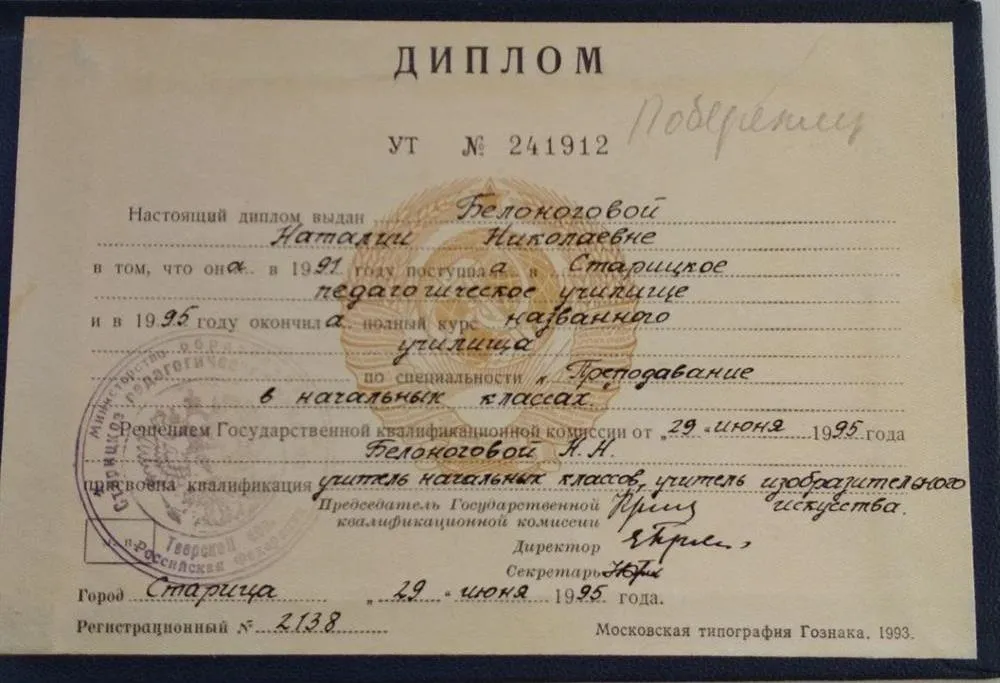 ДИПЛОМ
УТ № 241912
Настоящий диплом выдан Белоноговой
Наталии Николаевне
в том, что она в 1991 году поступила в Старицкое
педагогическое училище
и в 1995 году окончила полный курс названного
училища
по специальности „ Преподавание
в начальных классах
Решением Государственной квалификационной комиссии от „29" июня 1995 года
Белоноговой Н.Н.
присвоена квалификация учитель начальных классов, учитель изобразительного
искусства.
Председатель Государственной
квалификационной комиссии
Директор
Секретарь
Город Старица „29" июня 1995 года.
Регистрационный № 2138
Московская типография Гознака, 1993.
Министерство
Старицкое педагогическое
Тверской
Российская